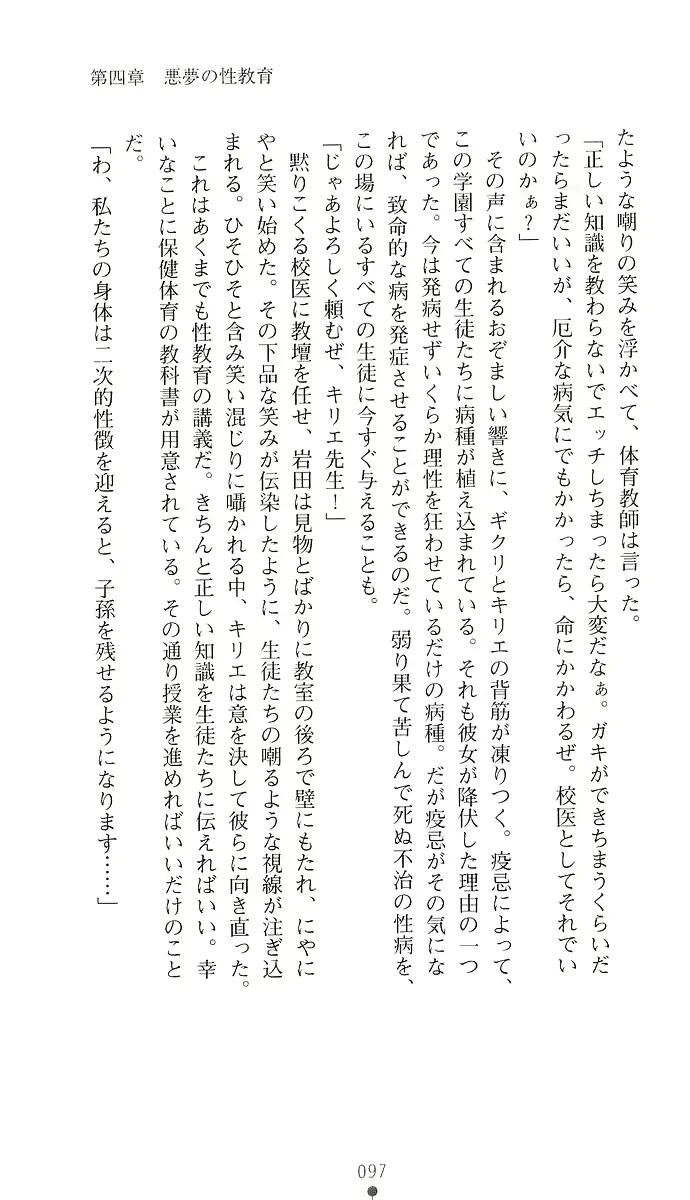 第四章　悪夢の性教育
たような嘲りの笑みを浮かべて、体育教師は言った。
「正しい知識を教わらないでエッチしちまったら大変だなぁ。ガキができちまうくらいだ
ったらまだいいが、厄介な病気にでもかかったら、命にかかわるぜ。校医としてそれでい
いのかぁ？」
　その声に含まれるおぞましい響きに、ギクリとキリエの背筋が凍りつく。疫忌によって、
この学園すべての生徒たちに病種が植え込まれている。それも彼女が降伏した理由の一つ
であった。今は発病せずいくらか理性を狂わせているだけの病種。だが疫忌がその気にな
れば、致命的な病を発症させることができるのだ。弱り果て苦しんで死ぬ不治の性病を、
この場にいるすべての生徒に今すぐ与えることも。
「じゃあよろしく頼むぜ、キリエ先生！」
　黙りこくる校医に教壇を任せ、岩田は見物とばかりに教室の後ろで壁にもたれ、にやに
やと笑い始めた。その下品な笑みが伝染したように、生徒たちの嘲るような視線が注ぎ込
まれる。ひそひそと含み笑い混じりに囁かれる中、キリエは意を決して彼らに向き直った。
　これはあくまでも性教育の講義だ。きちんと正しい知識を生徒たちに伝えればいい。幸
いなことに保健体育の教科書が用意されている。その通り授業を進めればいいだけのこと
だ。
「わ、私たちの身体は二次的性徴を迎えると、子孫を残せるようになります……」
097